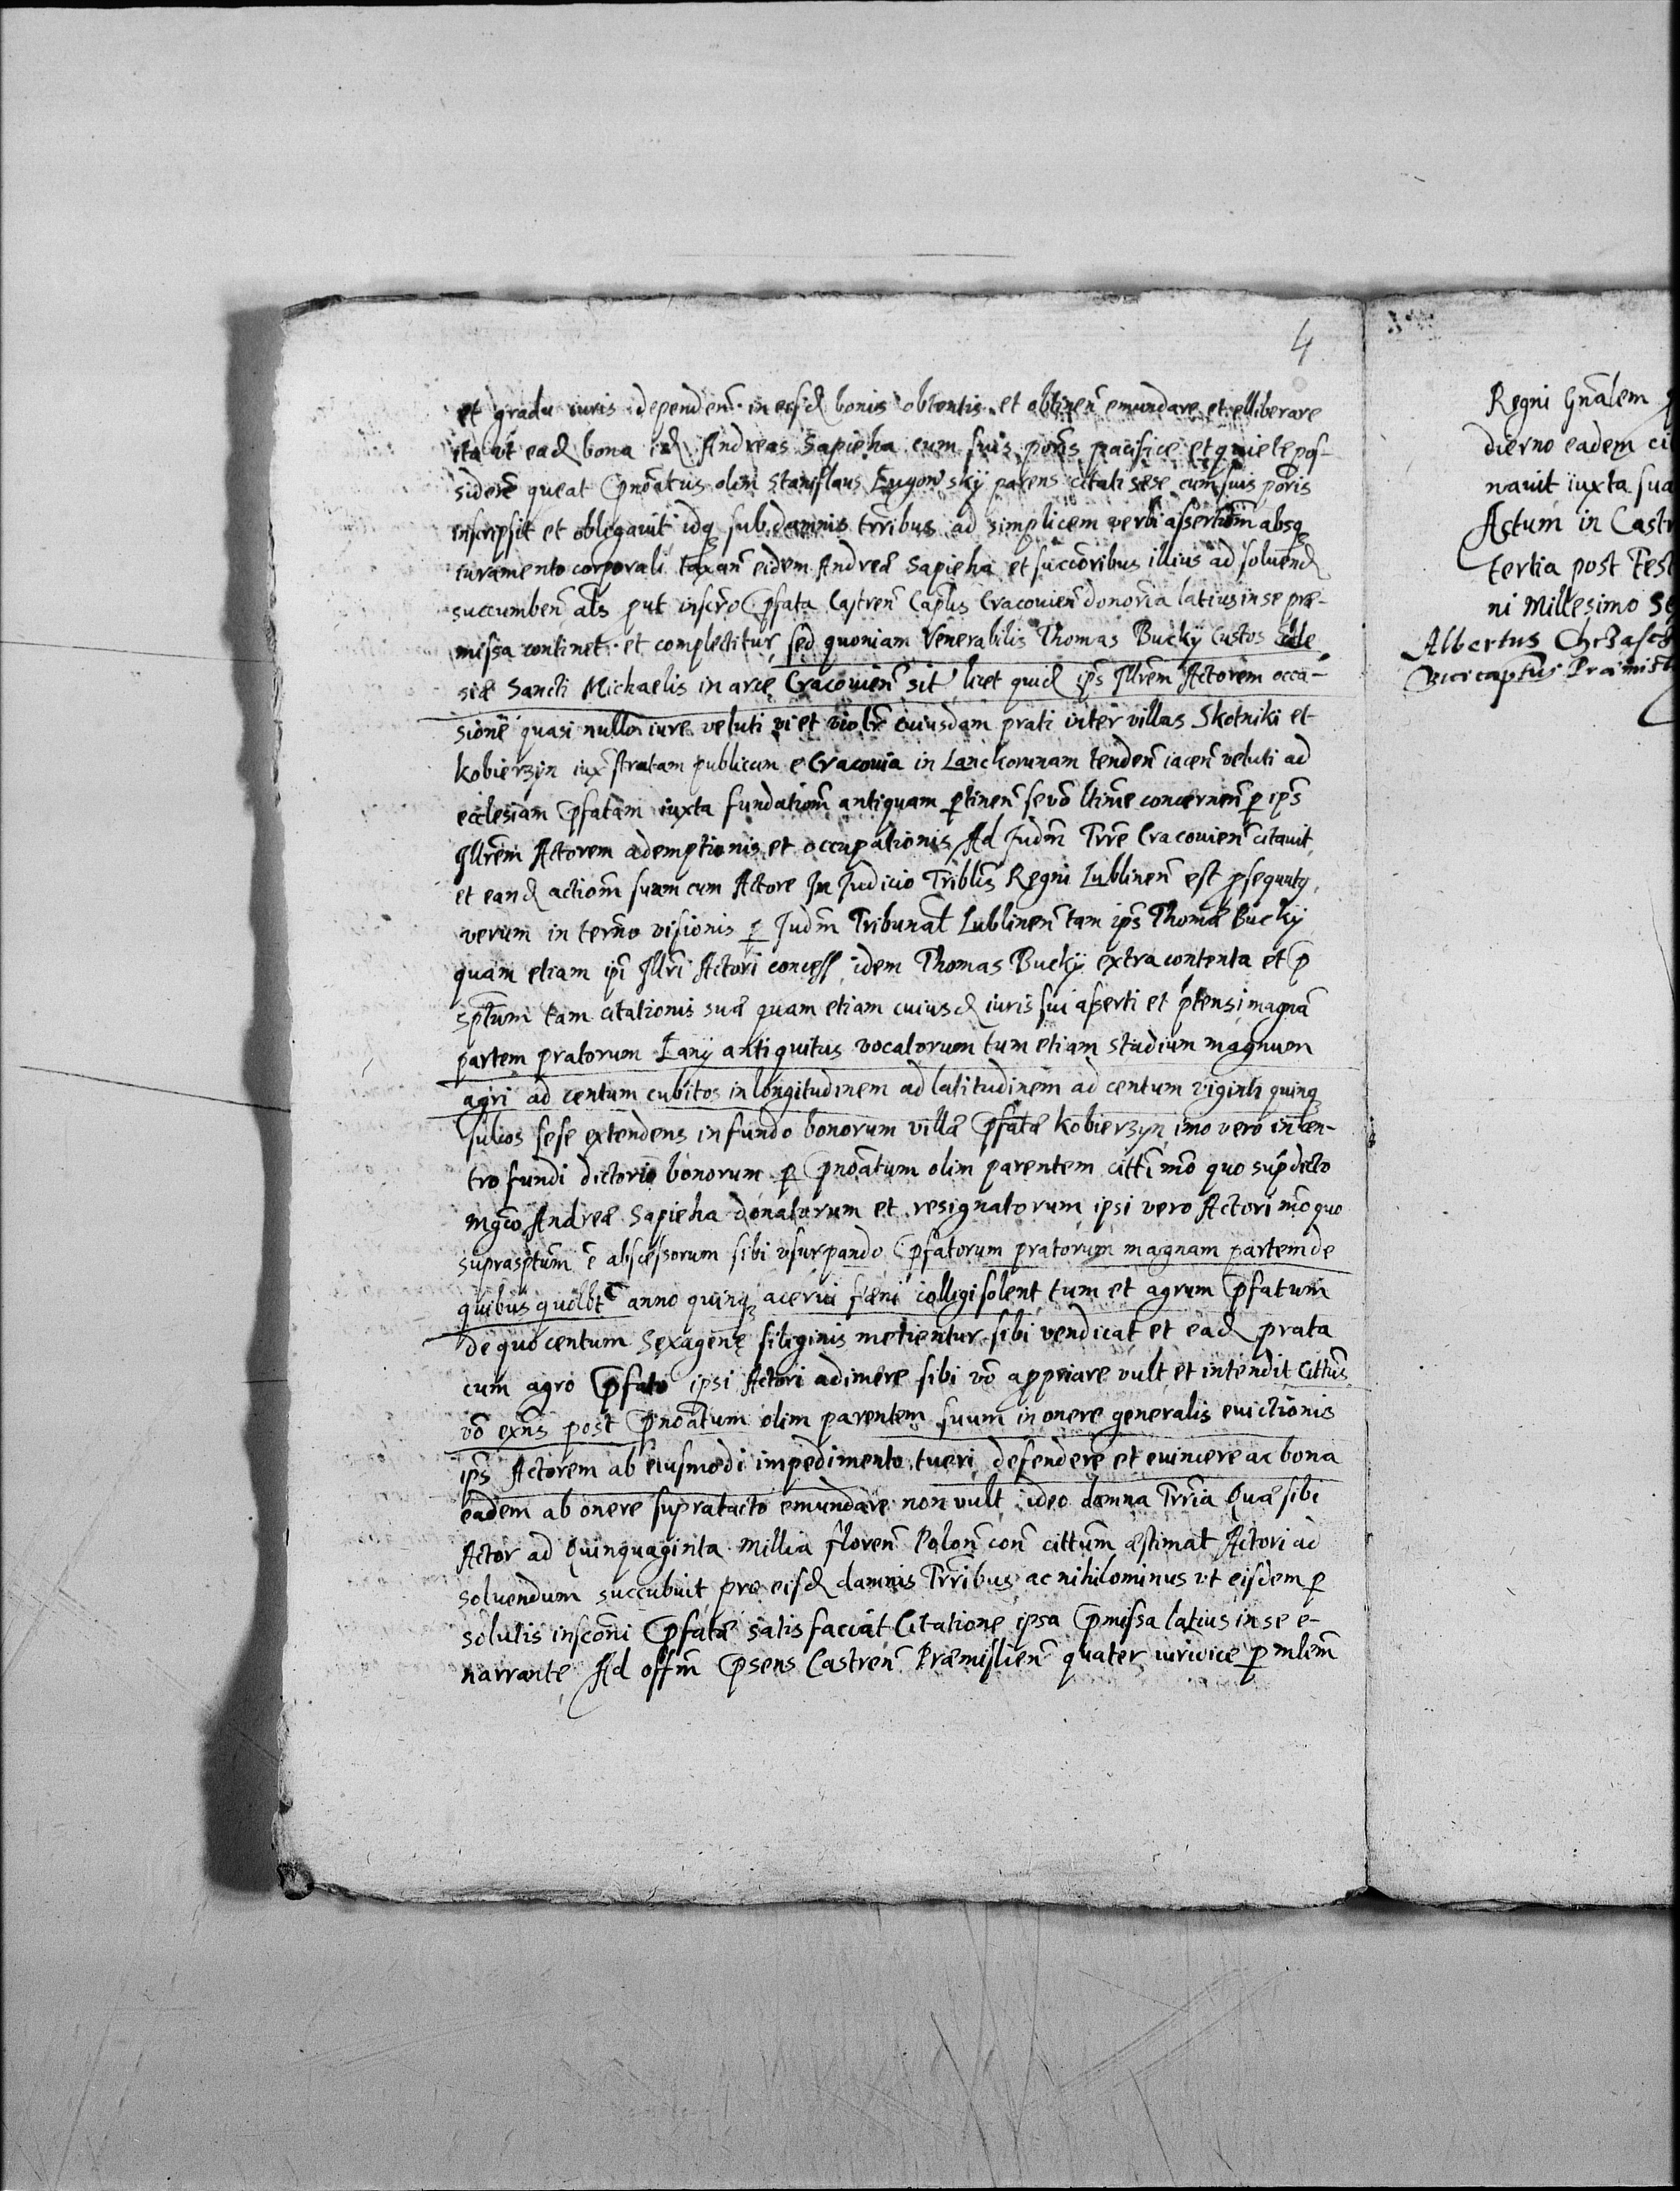 4
et gradu iuris dependeñ. in eisd bonis obtentis et obtineñ emundare et elliberare
ita ut ead bona id Andreas Sapieha cum suis poris pacifice et quiete pos-
sidere queat Pnoatus olim Stanislaus Lugowsky parens citati sese cum suis poris
inscripsit et obligavit idq sub damnis trribus ad simplicem verbi assertiom absq
iuramento corporali taxañ eidem Andreæ Sapieha et succoribus illius ad soluend
succumbeñ als put inscro pfata Castreñ Caplis Cracovieñ donoria latius in se præ-
missa continet et complectitur sed quoniam Venerabilis Thomas Bucky Custos Eccle
siæ Sancti Michaelis in arce Cracovieñ sit licet quid ips Illrem Actorem occa-
sione quasi nullo iure veluti vi et violr cuiusdam prati inter villas Skotniki et
Kobierzyn iux stratam publicam e Cracovia in Lanckorunam tendeñ iaceñ veluti ad
ecclesiam pfatam iuxta fundationm antiquam ptineñ se vo ltime concerneñ p ips
Illrem Actorem ademptionis et occupationis Ad Judm Trre Cracovieñ citavit
et eand actiom suam cum Actore In Judicio Triblis Regni Lublineñ est psequutq
verum in termo visionis p Judm Tribunal Lublineñ tam ips Thomæ Bucky
quam etiam ipi Illri Actori concess idem Thomas Bucky extra contenta et p
sptum tam citationis suæ quam etiam cuiusd iuris sui asserti et ptensi magna
partem pratorum Lany antiquitus vocatorum tum etiam studium magnum
agri ad centum cubitos in longitudinem ad latitudinem ad centum viginti quinq
sulcos sese extendens in fundo bonorum villæ pfatæ Kobierzyn imo vero in cen-
tro fundi dictorio bonorum p pnoatum olim parentem citti mo quo supdicto
mgco Andreæ Sapieha donatorum et resignatorum ipsi vero Actori mo quo
suprasptum e abscessorum sibi usurpando pfatorum pratorum magnam partem de
quibus quolbt anno quinq acervi fæni colligi solent tum et agrum pfatum
de quo centum sexagene siliginis metientur sibi vendicat et ead prata
cum agro pfato ipsi Actori adimere sibi vo appriare vult et intendit Cittus
vo exns post pnoatum olim parentem suum in onere generalis evictionis
ips Actorem ab eiusmodi impedimento tueri defendere et evincere ac bona
eadem ab onere supratacto emundare non vult ideo damna Trria Quæ sibi
Actor ad Quinquaginta millia floreñ Poloñ coñ cittum æstimat Actori ad
soluendum succubuit pro eisd damnis Trribus ac nihilominus vt eisdem p
solutis insconi pfatæ satisfaciat Citatione ipsa pmissa latius in se e-
narrante Ad offm psens Castreñ Præmislieñ quater iuridice p mlem
Regni Gnalem
dierno eadem
navit iuxta
Actum in
tertia post
ni Millesimo
Albertus